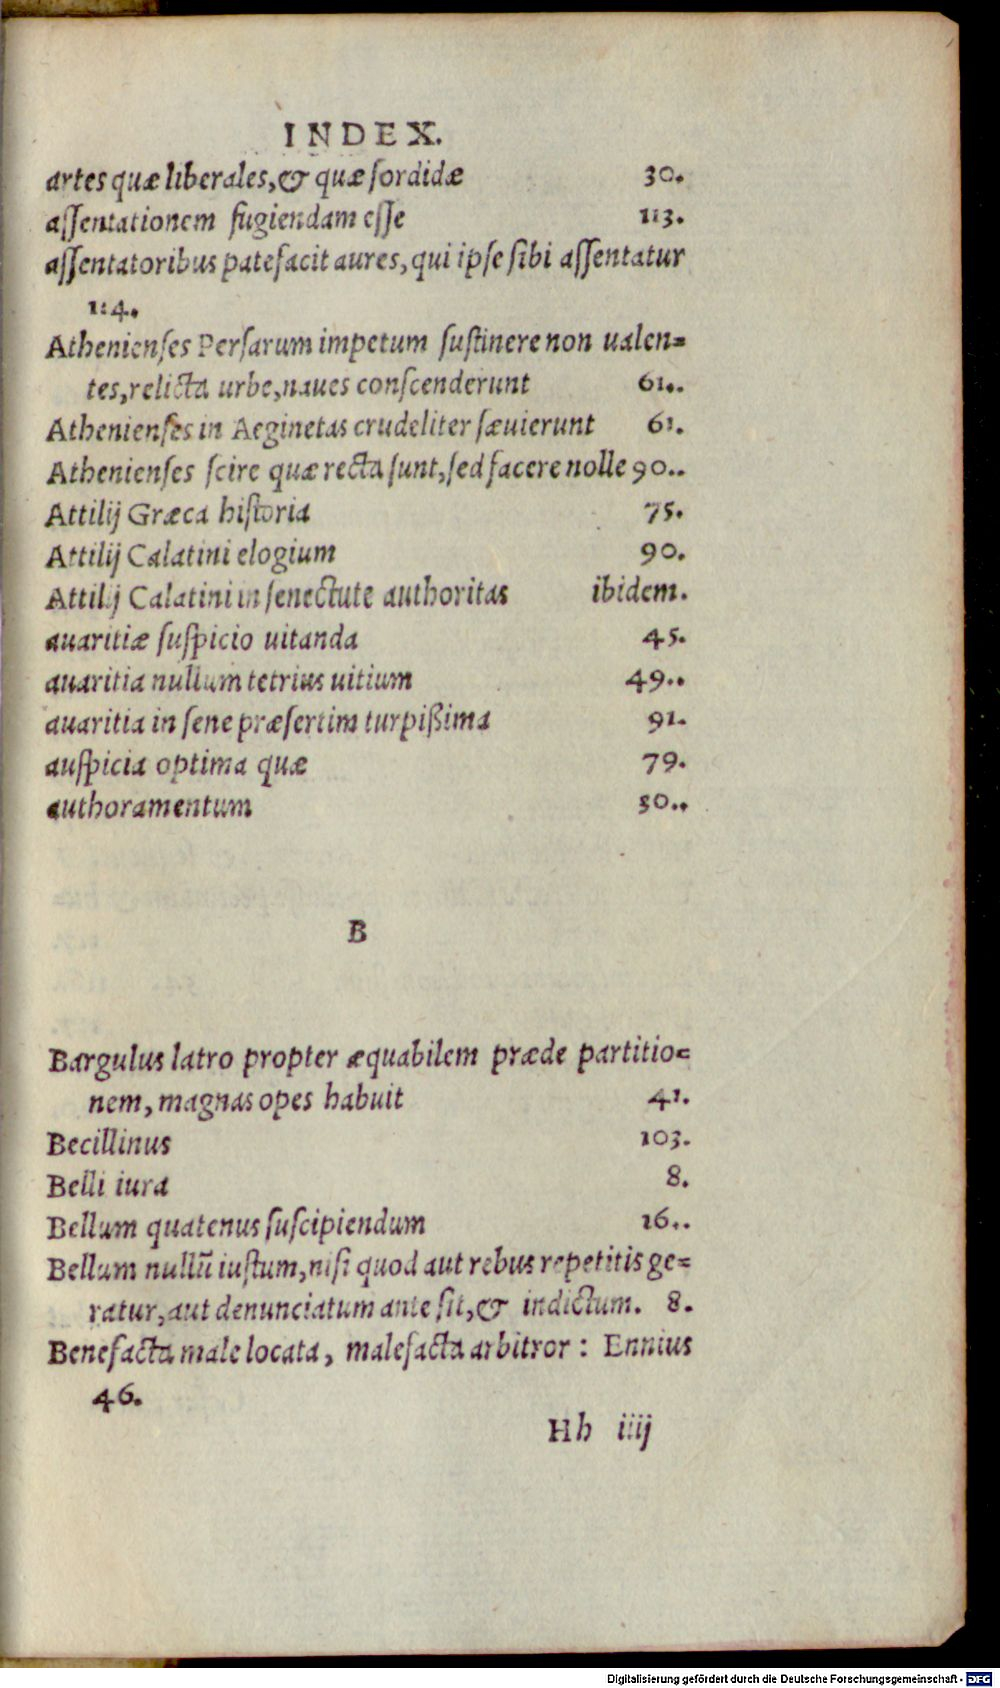 INDEX.
artes quæ liberales, & quæ ſordidæ 30.
aſſentationem fugiendam eſſe 113.
aſſentatoribus patefacit aures, qui ipſe ſibi aſſentatur
114.
Athenienſes Perſarum impetum ſuſtinere non ualen=
tes, relicta urbe, naues conſcenderunt 61..
Athenienſes in Aeginetas crudeliter ſæuierunt 61.
Athenienſes ſcire quæ recta ſunt, ſed facere nolle 90..
Attilij Græca hiſtoria 75.
Attilij Calatini elogium 90.
Attilij Calatini in ſenectute authoritas ibidem.
auaritiæ ſuſpicio uitanda 45.
auaritia nullum tetrius uitium 49..
auaritia in ſene præſertim turpißima 91.
auſpicia optima quæ 79.
authoramentum 30..
B
Bargulus latro propter æquabilem prædę partitio=
nem, magnas opes habuit 41.
Becillinus 103.
Belli iura 8.
Bellum quatenus ſuſcipiendum 16..
Bellum nullũ iuſtum, niſi quod aut rebus repetitis ge=
ratur, aut denunciatum ante ſit, & indictum. 8.
Benefacta male locata, malefacta arbitror : Ennius
46.
Hh iiij
Digitalisierung gefördert durch die Deutsche Forschungsgemeinschaft - DFG